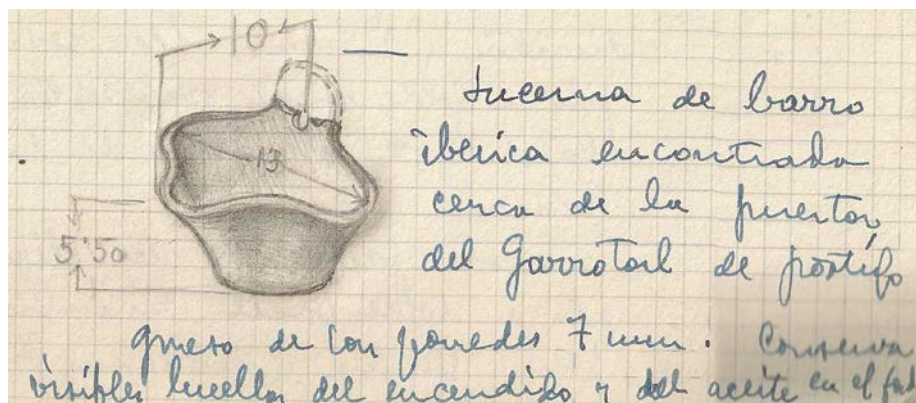 10
13
5'50
Lucerna de barro
ibérica encontrada
cerca de la puerta
del Garrotal de postigo
grueso de las paredes 7 mm. Conserva
visibles huellas del encendido y del aceite en el